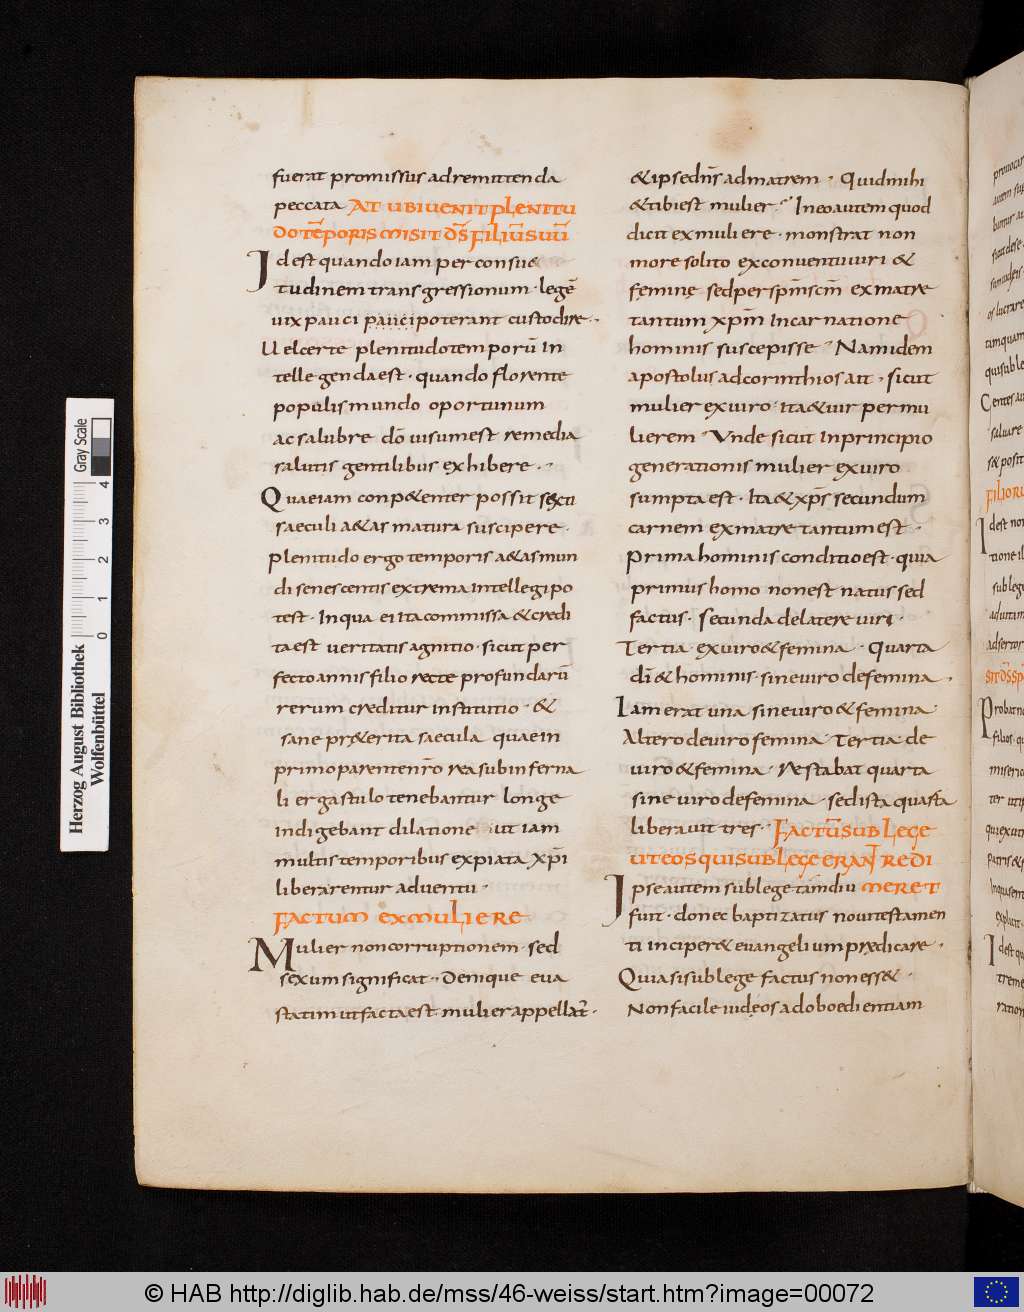 fuerat promissus ad remittenda
peccata AT UBI UENIT PLENITU
DO TE͞PORIS MISIT D͞S FILIU͞ SUU͞
Id est quando iam per consue
tudinem transgressionum · lege͞
uix pauci pauci poterant custodire ·
Uel certe plenitudo temporu͞ in
tellegenda est · quando florente
populis mundo oportunum
ac salubre d͞o uisum est remedia
salutis gentilibus exhibere ·
Quae iam conp&enter possit sexti
saeculi a&as matura suscipere ·
Plenitudo ergo temporis a&as mun
di senescentis extrema intellegi po
test · In qua ei ita commissa & credi
ta est ueritatis agnitio · sicut per
fecto annis filio recte profundaru͞
rerum creditur institutio · &
sane pr&erita saecula quae in
primo parente n͞ro rea sub inferna
li ergastulo tenebantur longe
indigebant dilatione · ut iam
multis temporibus expiata xp͞i
liberarentur aduentu ·
FACTUM EX MULIERE
Mulier non corruptionem · sed
sexum significat · Denique eua
statim ut facta est mulier appellat͞ ·
& ipse d͞ns ad matrem · Quid mihi
& tibi est mulier · In eo autem quod
dicit ex muliere · monstrat non
more solito ex conuentu uiri &
feminę sed per sp͞m sc͞m ex matre
tantum xp͞m incarnatione
hominis suscepisse · Nam idem
apostolus ad corinthios ait · sicut
mulier ex uiro · ita & uir per mu
lierem · Unde sicut in principio
generationis mulier ex uiro
sumpta est · Ita & xp͞s secundum
carnem ex matre tantum est ·
Prima hominis conditio est · quia
primus homo non est natus sed
factus · Secunda de latere uiri ·
Tertia · ex uiro & femina · Quarta
d͞i & hominis · sine uiro de femina ·
Iam erat una sine uiro & femina ·
Altero de uiro femina · Tertia de
uiro & femina · Restabat quarta
sine uiro de femina · sed ista quarta
liberauit tres · FACTU͞ SUB LEGE
UT EOS QUI SUB LEGE ERANT REDI
Ipse autem sub lege tamdiu MERET
fuit · donec baptizatus noui testamen
ti inciper& euangelium prędicare ·
Quia si sub lege factus non ess& ·
Non facile iudęos ad oboedientiam
Herzog August Bibliothek
Wolfenbüttel
Gray Scale
0 1 2 3 4
© HAB http://diglib.hab.de/mss/46-weiss/start.htm?image=00072